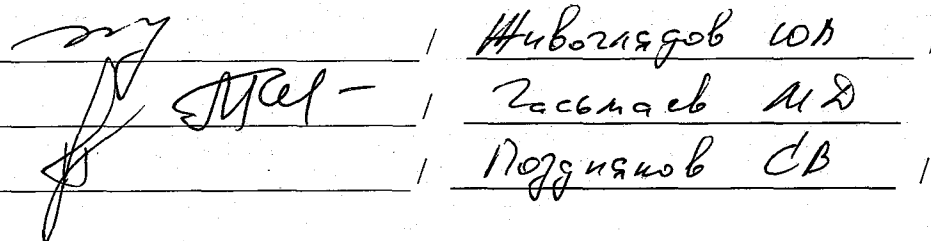 / Живоглядов ЮВ /
/ Гасымаев МД
/ Поздняков СВ /